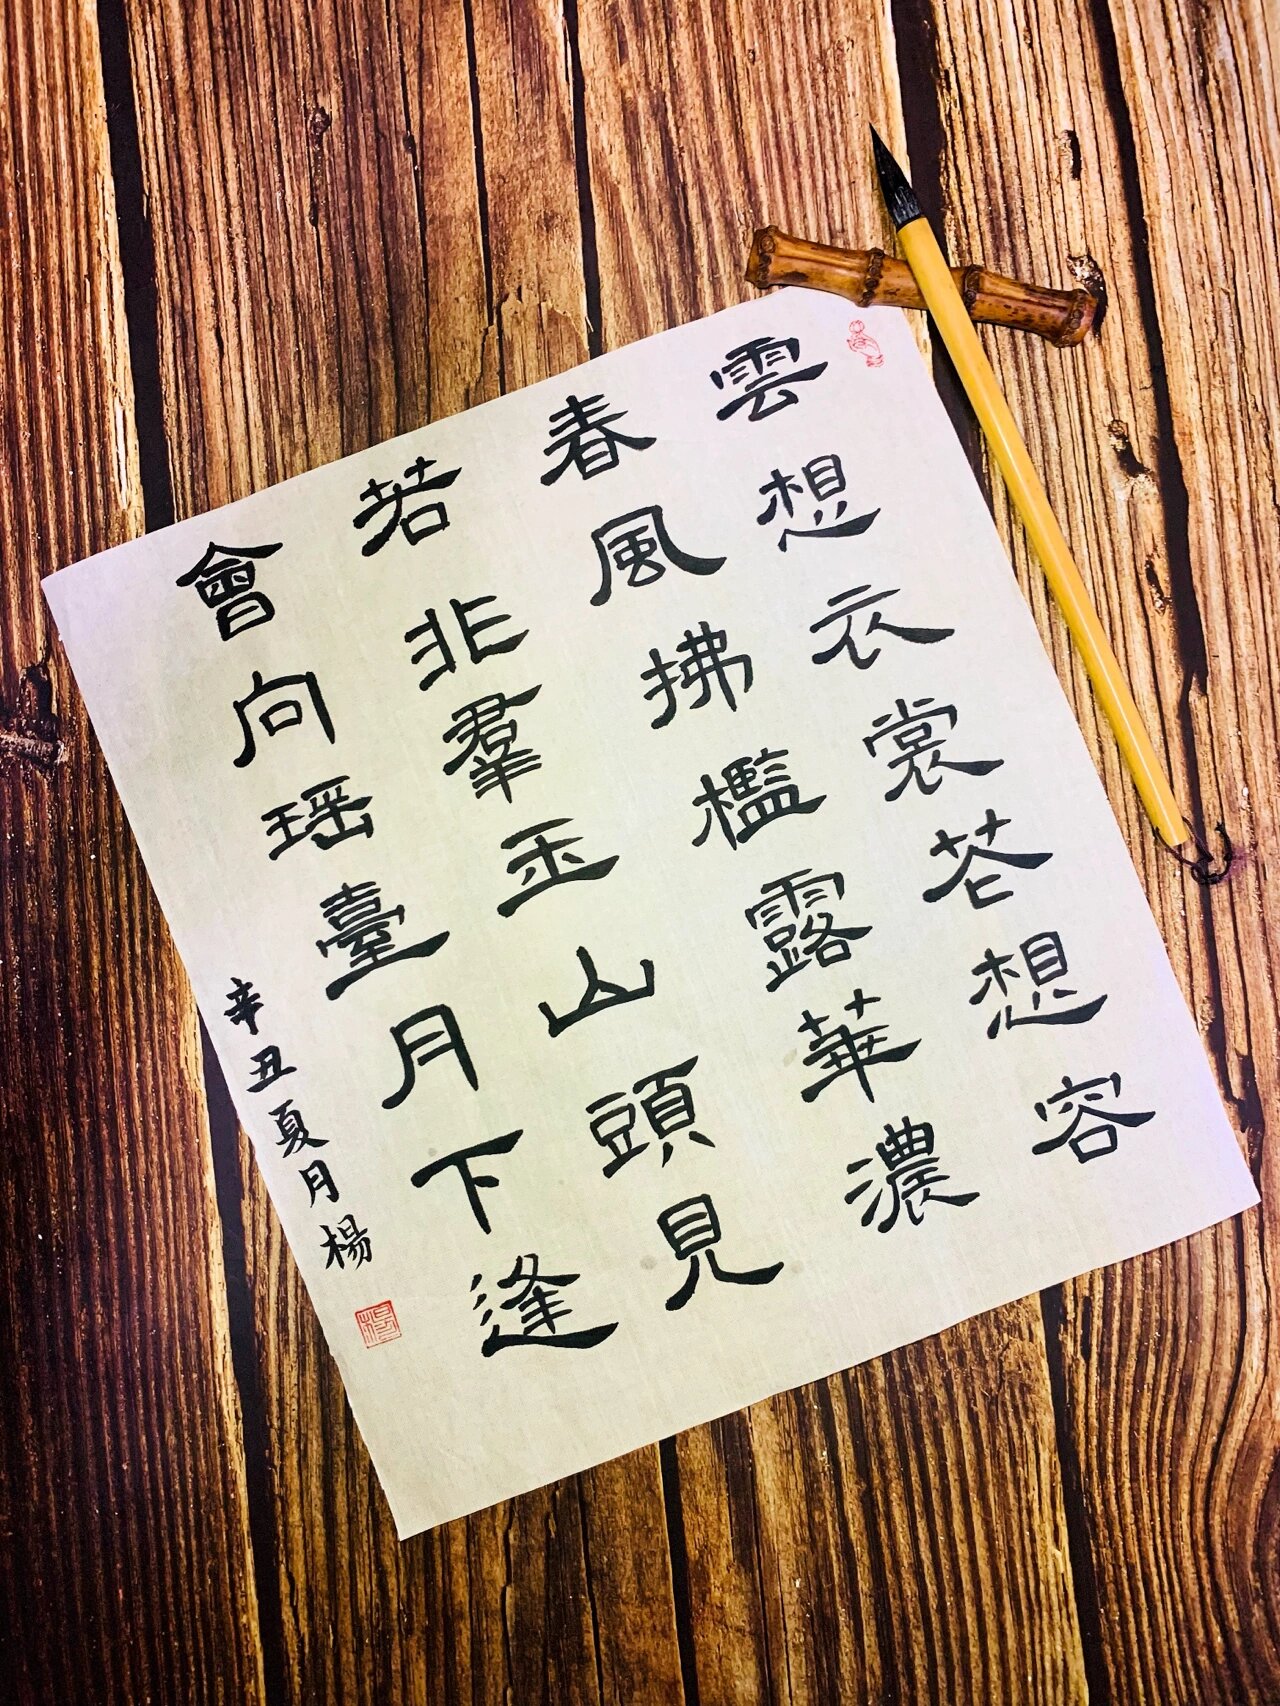 雲想衣裳花想容
春風拂檻露華濃
若非羣玉山頭見
會向瑶臺月下逢
辛丑夏月楊
楊